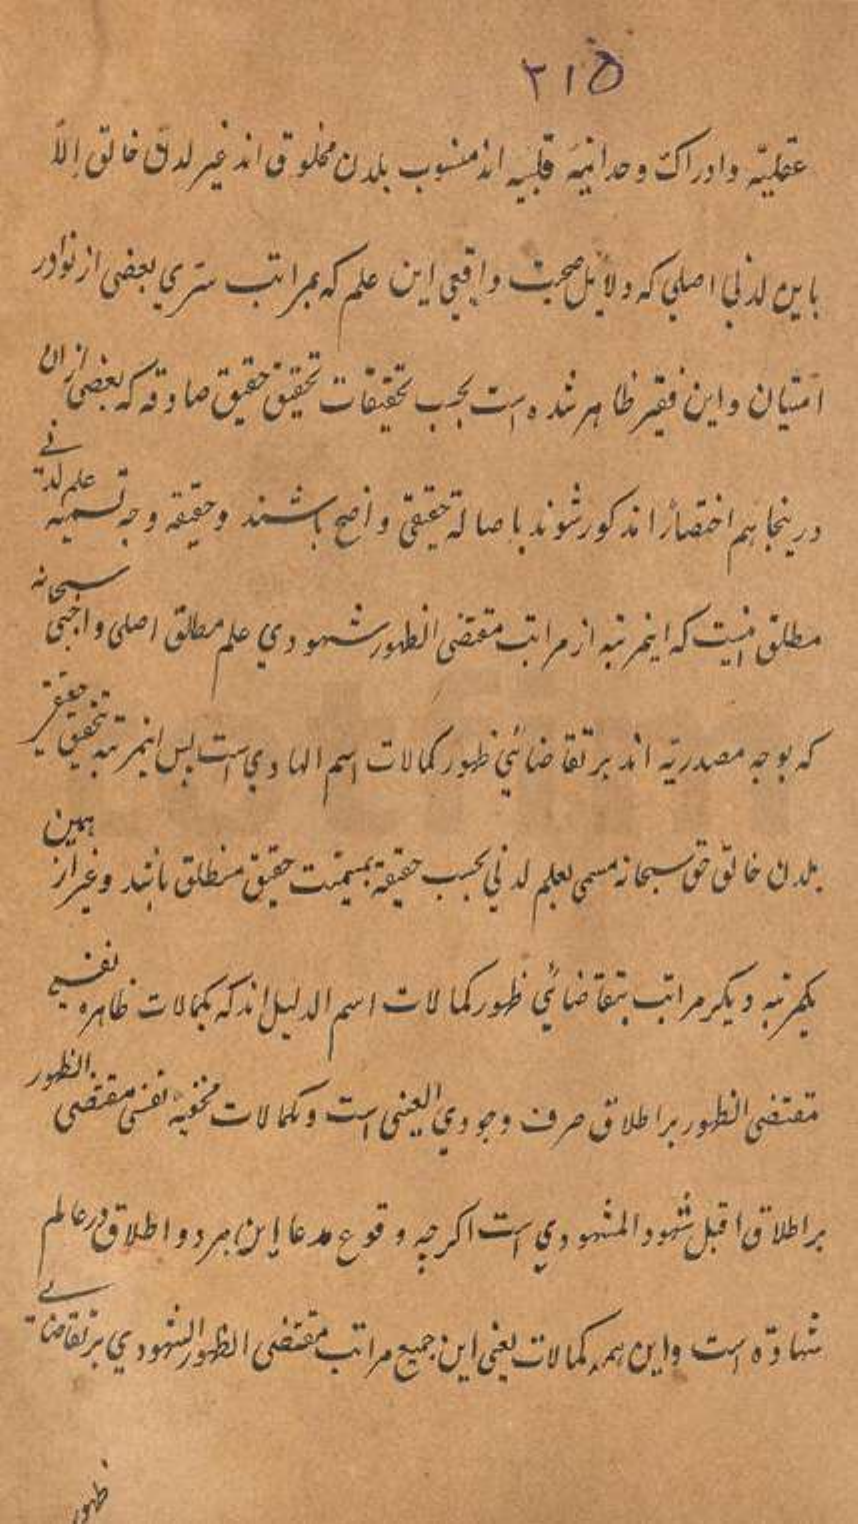 ۲۱۵
عقلیّه و ادراک وحدانیّه قلبیه اند منسوب بلدن مخلوق اند غیر لدن خالق إلّا
باین لدنی اصلی که دلایل صحت واقعی این علم که بمراتب ستری بعضی از نوادر
امتیان و این فقیر ظاهر شده است بحسب تحقیقات تحقیق حقیق صادقه که بعضی ازان
درینجا هم اختصارًا مذکور شوند باصالة حقیقی واضح باشند و حقیقه وجه تسمیه علم لدنی
مطلق اینست که اینمرتبه از مراتب مقتضی الظهور شهودی علم مطلق اصلی واجبی سبحانه
که بوجه مصدریّه اند بر تقاضائی ظهور کمالات اسم الهادی است پس اینمرتبه تحقیق حقیقی
بلدن خالق حق سبحانه مسمی بعلم لدنی بحسب حقیقة حقیق مطلق باشد و غیر از همین
یکمرتبه دیکر مراتب بتقاضائی ظهور کمالات اسم الدلیل اند که بکمالات ظاهره نفسی
مقتضی الظهور بر اطلاق صرف وجودی العینی است و بکمالات مخفیه نفسی مقتضی الظهور
بر اطلاق اقبل شهود المشهودی است اکرچه وقوع مدعا این هر دو اطلاق در عالم
شهادة است و این همه کمالات یعنی این جمیع مراتب مقتضی الظهور الشهودی بر تقاضائی
ظهور